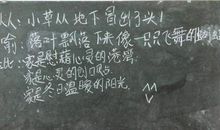 从人：小草从地下冒出了头！
喻：落叶飘落下来像一只只飞舞的蝴蝶
比：家是慰藉心灵的港湾
家是心灵的
家是冬日温暖的阳光